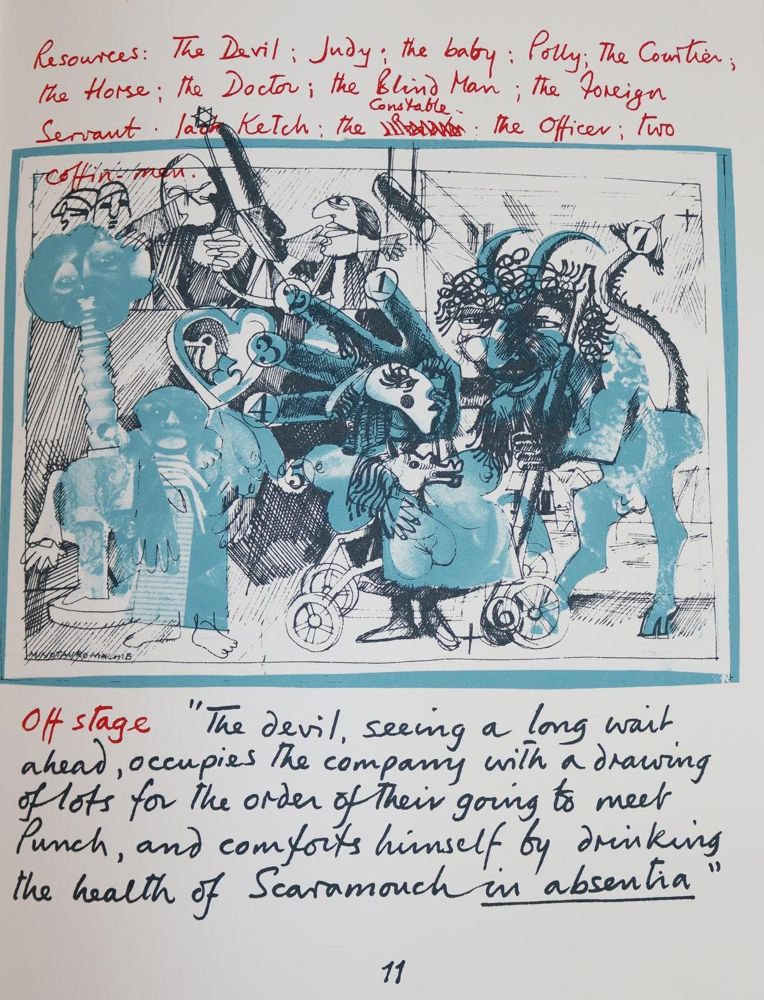 Resources: The Devil; Judy; the baby; Polly; the Courtier;
the Horse; the Doctor; the Blind Man; the Foreign
Constable
Servant. Ketch; the : the Officer; two
coffin-men.
7
1
2
3
4
5
6
Off stage "The devil, seeing a long wait
ahead, occupies the company with a drawing
of lots for the order of their going to meet
Punch, and comforts himself by drinking
the health of Scaramouch in absentia"
11